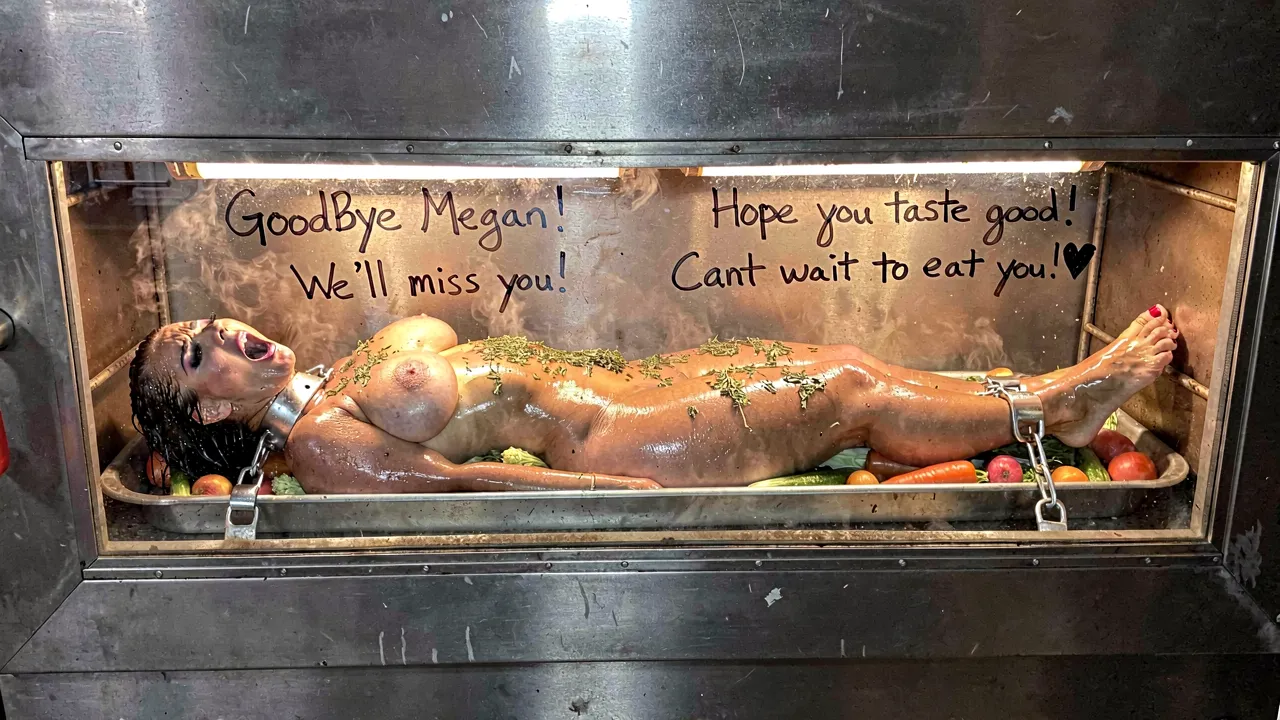 GoodBye Megan!
We'll miss you!
Hope you taste good!
Cant wait to eat you!♥